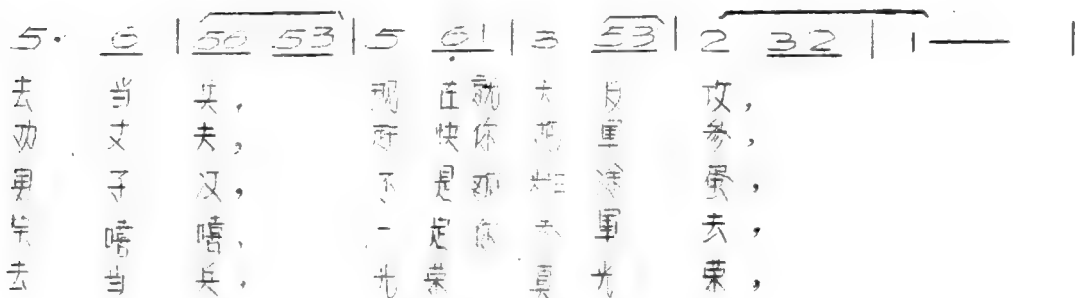 5. 6 | 56 53 | 5 61 | 3 53 | 2 32 | 1 — |
去 当 兵， 现 在 就 大 反 攻，
劝 丈 夫， 快 你 军 参，
男 子 汉， 不 是 蛋，
笑 嘻 嘻， 一 定 你 去 军 去，
去 当 兵， 光 荣 真 光 荣，